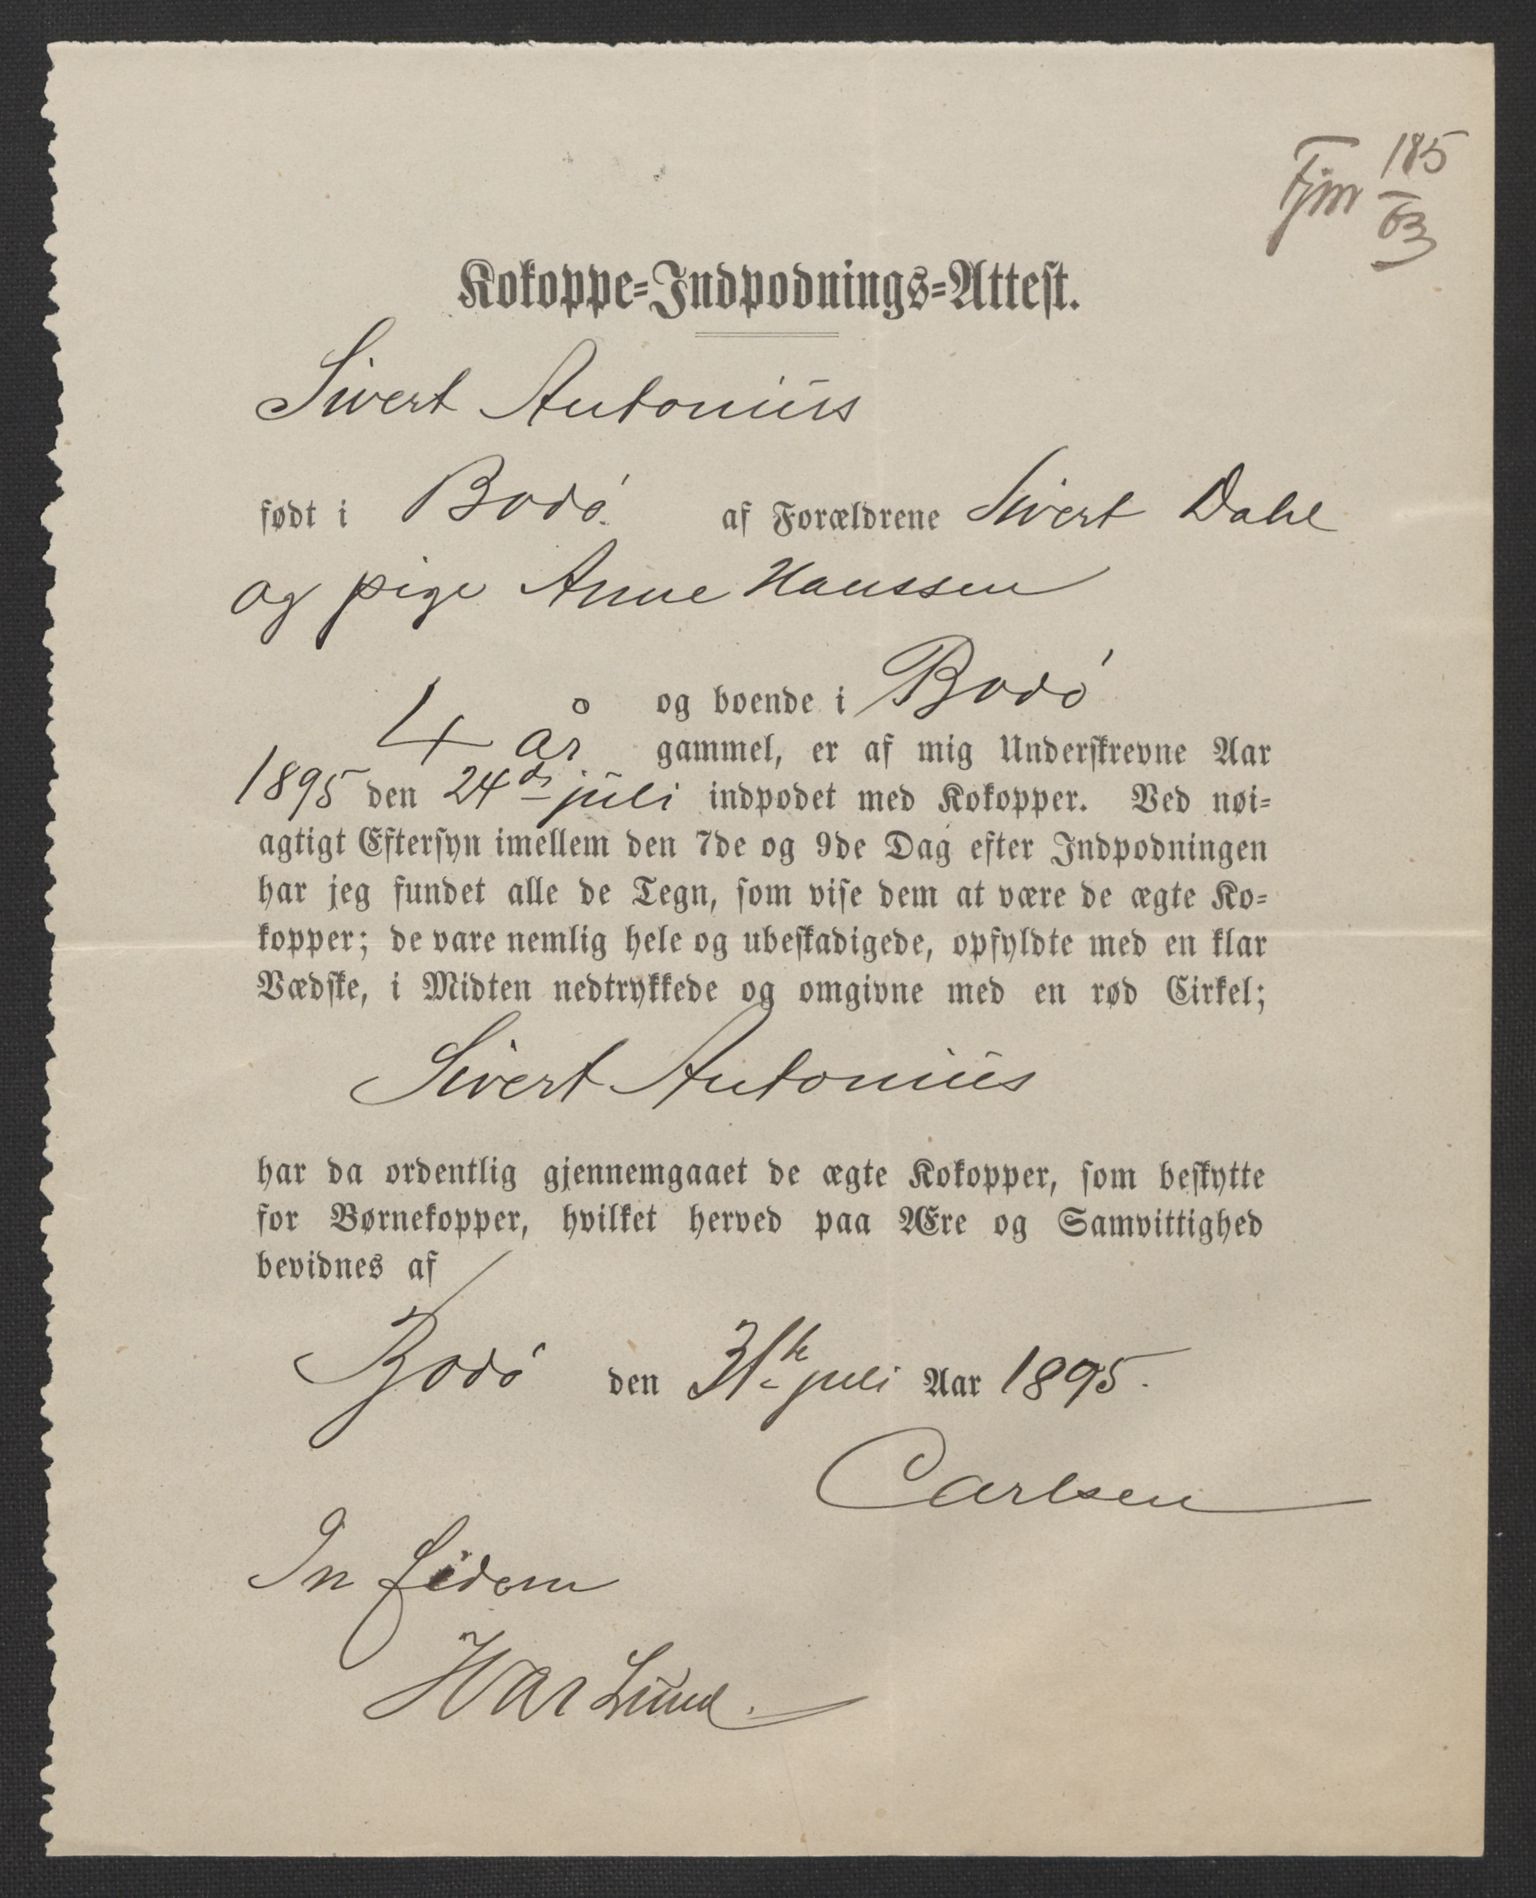 Fjm 185
63
Kokoppe-Indpodnings-Attest.
Sivert Antonius
født i Bodø. af Forældrene Sivert Dahl
og pige Anne Hanssen
og boende i Bodø
4 år gammel, er af mig Underskrevne Aar
1895 den 24de juli indpodet med Kokopper. Ved nøi-
agtigt Eftersyn imellem den 7de og 9de Dag efter Indpodningen
har jeg fundet alle de Tegn, som vise dem at være de ægte Ko-
kopper; de vare nemlig hele og ubeskadigede, opfyldte med en klar
Vædske, i Midten nedtrykkede og omgivne med en rød Cirkel;
Sivert Antonius
har da ordentlig gjennemgaaet de ægte Kokopper, som beskytte
for Børnekopper, hvilket herved paa Ære og Samvittighed
bevidnes af
Bodø den 31te juli Aar 1895.
Carlsen
In fidem
Lund.